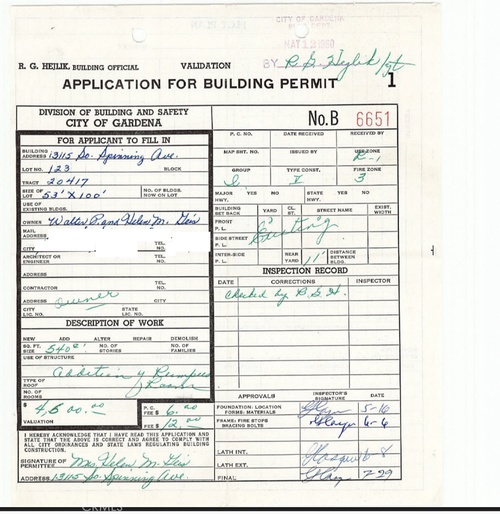 CITY OF GARDENA
R. G. HEJLIK, BUILDING OFFICIAL
VALIDATION
BY R. G. Hejlik/gt
APPLICATION FOR BUILDING PERMIT
1
DIVISION OF BUILDING AND SAFETY
CITY OF GARDENA
No. B 6651
FOR APPLICANT TO FILL IN
BUILDING ADDRESS 13115 So. Spinning Ave.
LOT NO. 123 BLOCK
TRACT 20417
SIZE OF LOT 53' X 100' NO. OF BLDGS. NOW ON LOT
USE OF EXISTING BLDG.
OWNER Walter P. and Helen M.
MAIL ADDRESS
CITY TEL. NO.
ARCHITECT OR ENGINEER TEL. NO.
ADDRESS
CONTRACTOR owner TEL. NO.
ADDRESS CITY
CITY LIC. NO. STATE LIC. NO.
DESCRIPTION OF WORK
NEW ADD ALTER REPAIR DEMOLISH
SQ. FT. SIZE 540 NO. OF STORIES NO. OF FAMILIES
USE OF STRUCTURE
Addition of Rumpus Room
TYPE OF ROOF
NO. OF ROOMS
$ 4,500.00 VALUATION
P. C. FEE $ 6.00
FEE $ 12.00
I HEREBY ACKNOWLEDGE THAT I HAVE READ THIS APPLICATION AND
STATE THAT THE ABOVE IS CORRECT AND AGREE TO COMPLY WITH
ALL CITY ORDINANCES AND STATE LAWS REGULATING BUILDING
CONSTRUCTION.
SIGNATURE OF PERMITTEE Mrs Helen M.
ADDRESS 13115 So. Spinning Ave.
P. C. NO. DATE RECEIVED RECEIVED BY
MAP SHT. NO. ISSUED BY USE ZONE R-1
GROUP I TYPE CONST. FIRE ZONE 3
MAJOR HWY. YES NO STATE HWY. YES NO
BUILDING SET BACK YARD STREET NAME EXIST. WIDTH
FRONT P. L. Existing
SIDE STREET P. L.
INTER-SIDE P. L. REAR YARD 11' DISTANCE BETWEEN BLDG.
INSPECTION RECORD
DATE CORRECTIONS INSPECTOR
Checked by R.G.H.
APPROVALS INSPECTOR'S SIGNATURE DATE
FOUNDATION: LOCATION FORMS: MATERIALS 5-16
FRAME: FIRE STOPS BRACING BOLTS 6-6
LATH INT. 6 8
LATH EXT.
FINAL 7-29
CRMLS